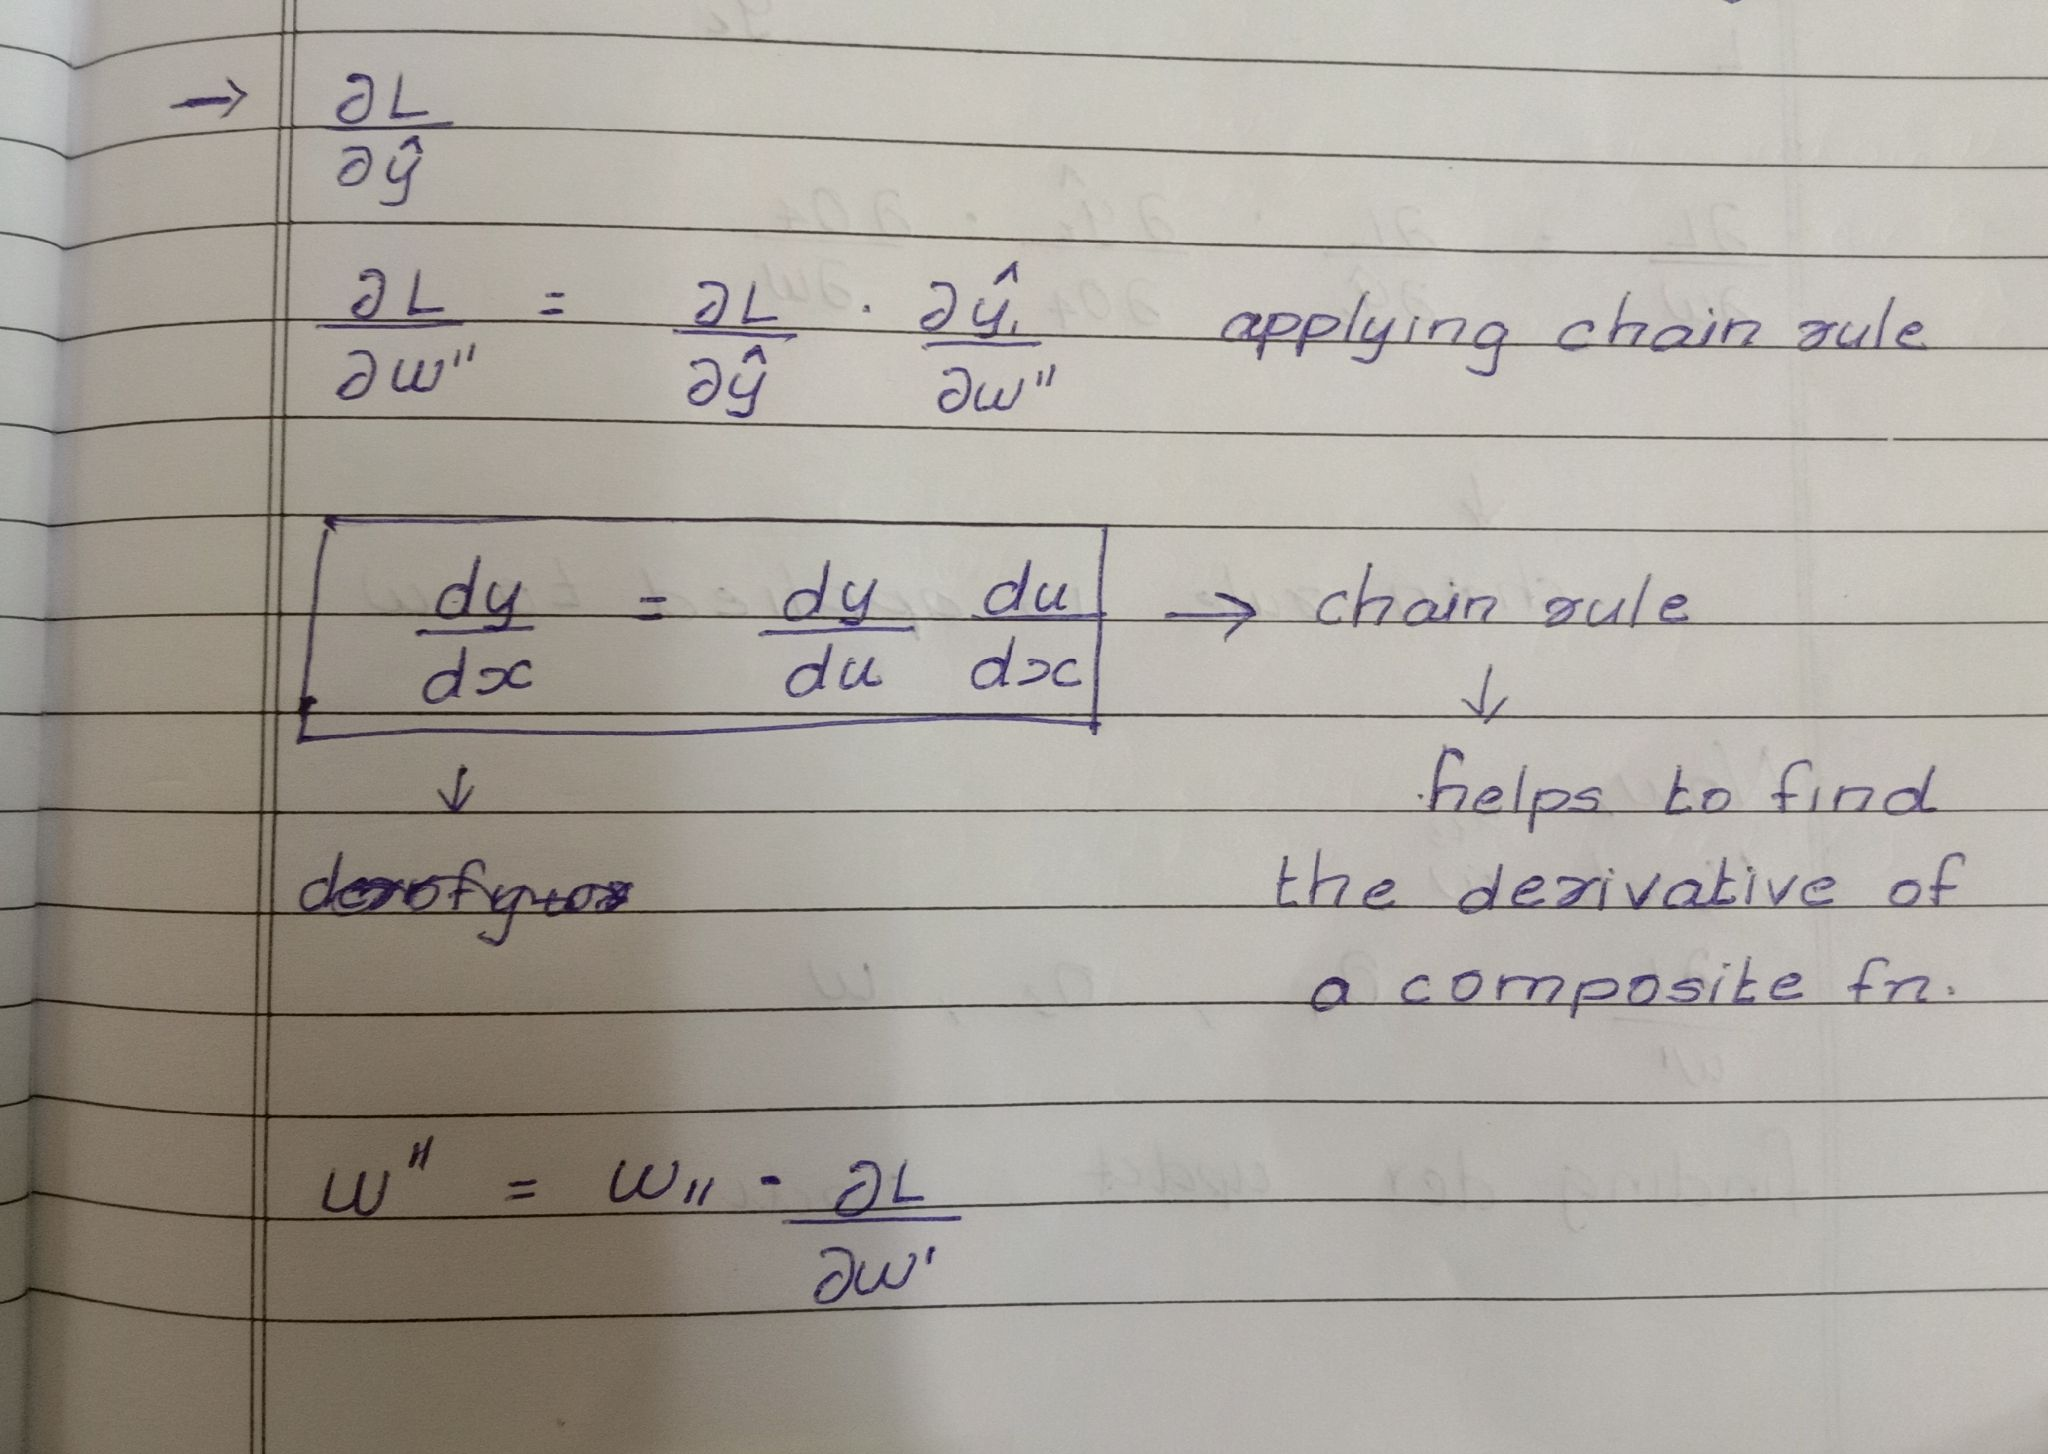 → ∂L/∂ŷ
∂L/∂w'' = ∂L/∂ŷ . ∂ŷ/∂w'' applying chain rule
dy/dx = dy/du du/dx → chain rule
↓
helps to find
↓
the derivative of
a composite fn.
w'' = w,, - ∂L/∂w'